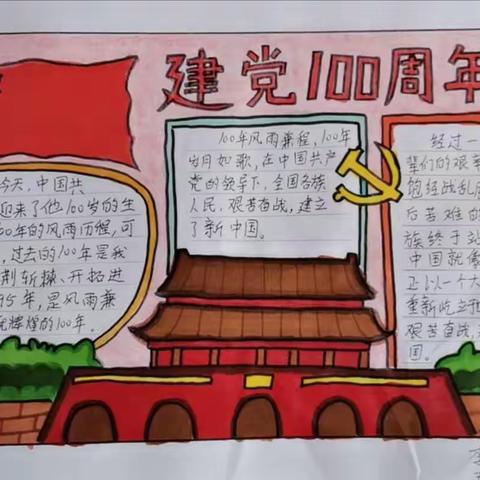 建党100周年
今天,中国共
迎来了他100岁的生
00年的风雨历程,可
,过去的100年是我
荆斩棘、开拓进
95年,是风雨兼
辉煌的100年.
100年风雨兼程,100年
岁月如歌,在中国共产
党的领导下,全国各族
人民,艰苦奋战,建立
了新中国。
经过一
辈们的艰
饱经战乱
后苦难的
族终于站
中国就像
正以一个大
重新屹立
艰苦奋战,
国。